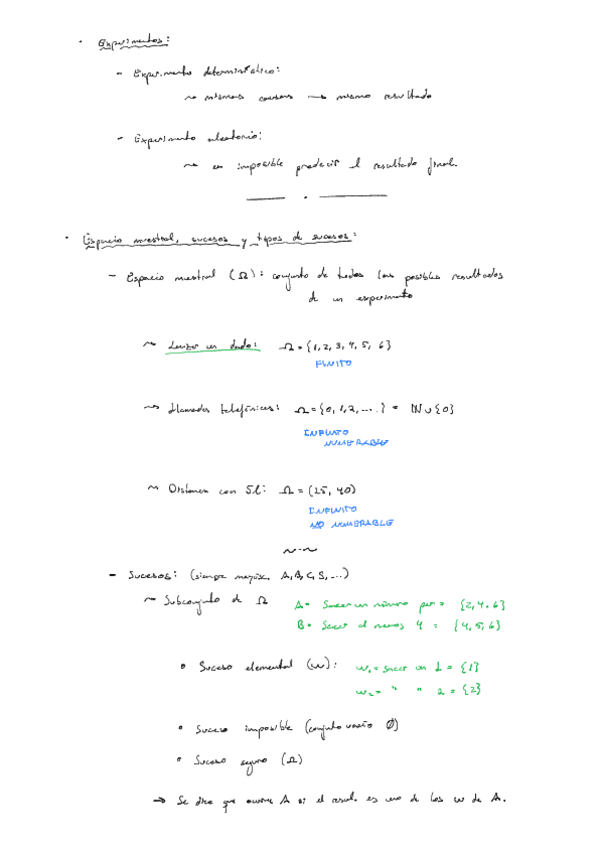 · Experimentos:
- Experimento determinístico:
~ mismas causas → mismo resultado
- Experimento aleatorio:
~ es imposible predecir el resultado final.
· Espacio muestral, sucesos y tipos de sucesos:
- Espacio muestral (Ω): conjunto de todos los posibles resultados
de un experimento
~ Lanzar un dado: Ω = {1, 2, 3, 4, 5, 6}
FINITO
~ Llamadas telefónicas: Ω = {0, 1, 2, ....} = ℕ ∪ {0}
INFINITO
NUMERABLE
~ Distancia con 5l: Ω = (25, 40)
INFINITO
NO NUMERABLE
- Sucesos: (siempre mayúsc. A, B, C, S, ...)
~ Subconjunto de Ω A = Sacar un número par = {2, 4, 6}
B = Sacar al menos 4 = {4, 5, 6}
• Suceso elemental (w): w₁ = sacar un 1 = {1}
w₂ = " " 2 = {2}
• Suceso imposible (conjunto vacío ∅)
• Suceso seguro (Ω)
→ Se dice que ocurre A si el result. es uno de los w de A.